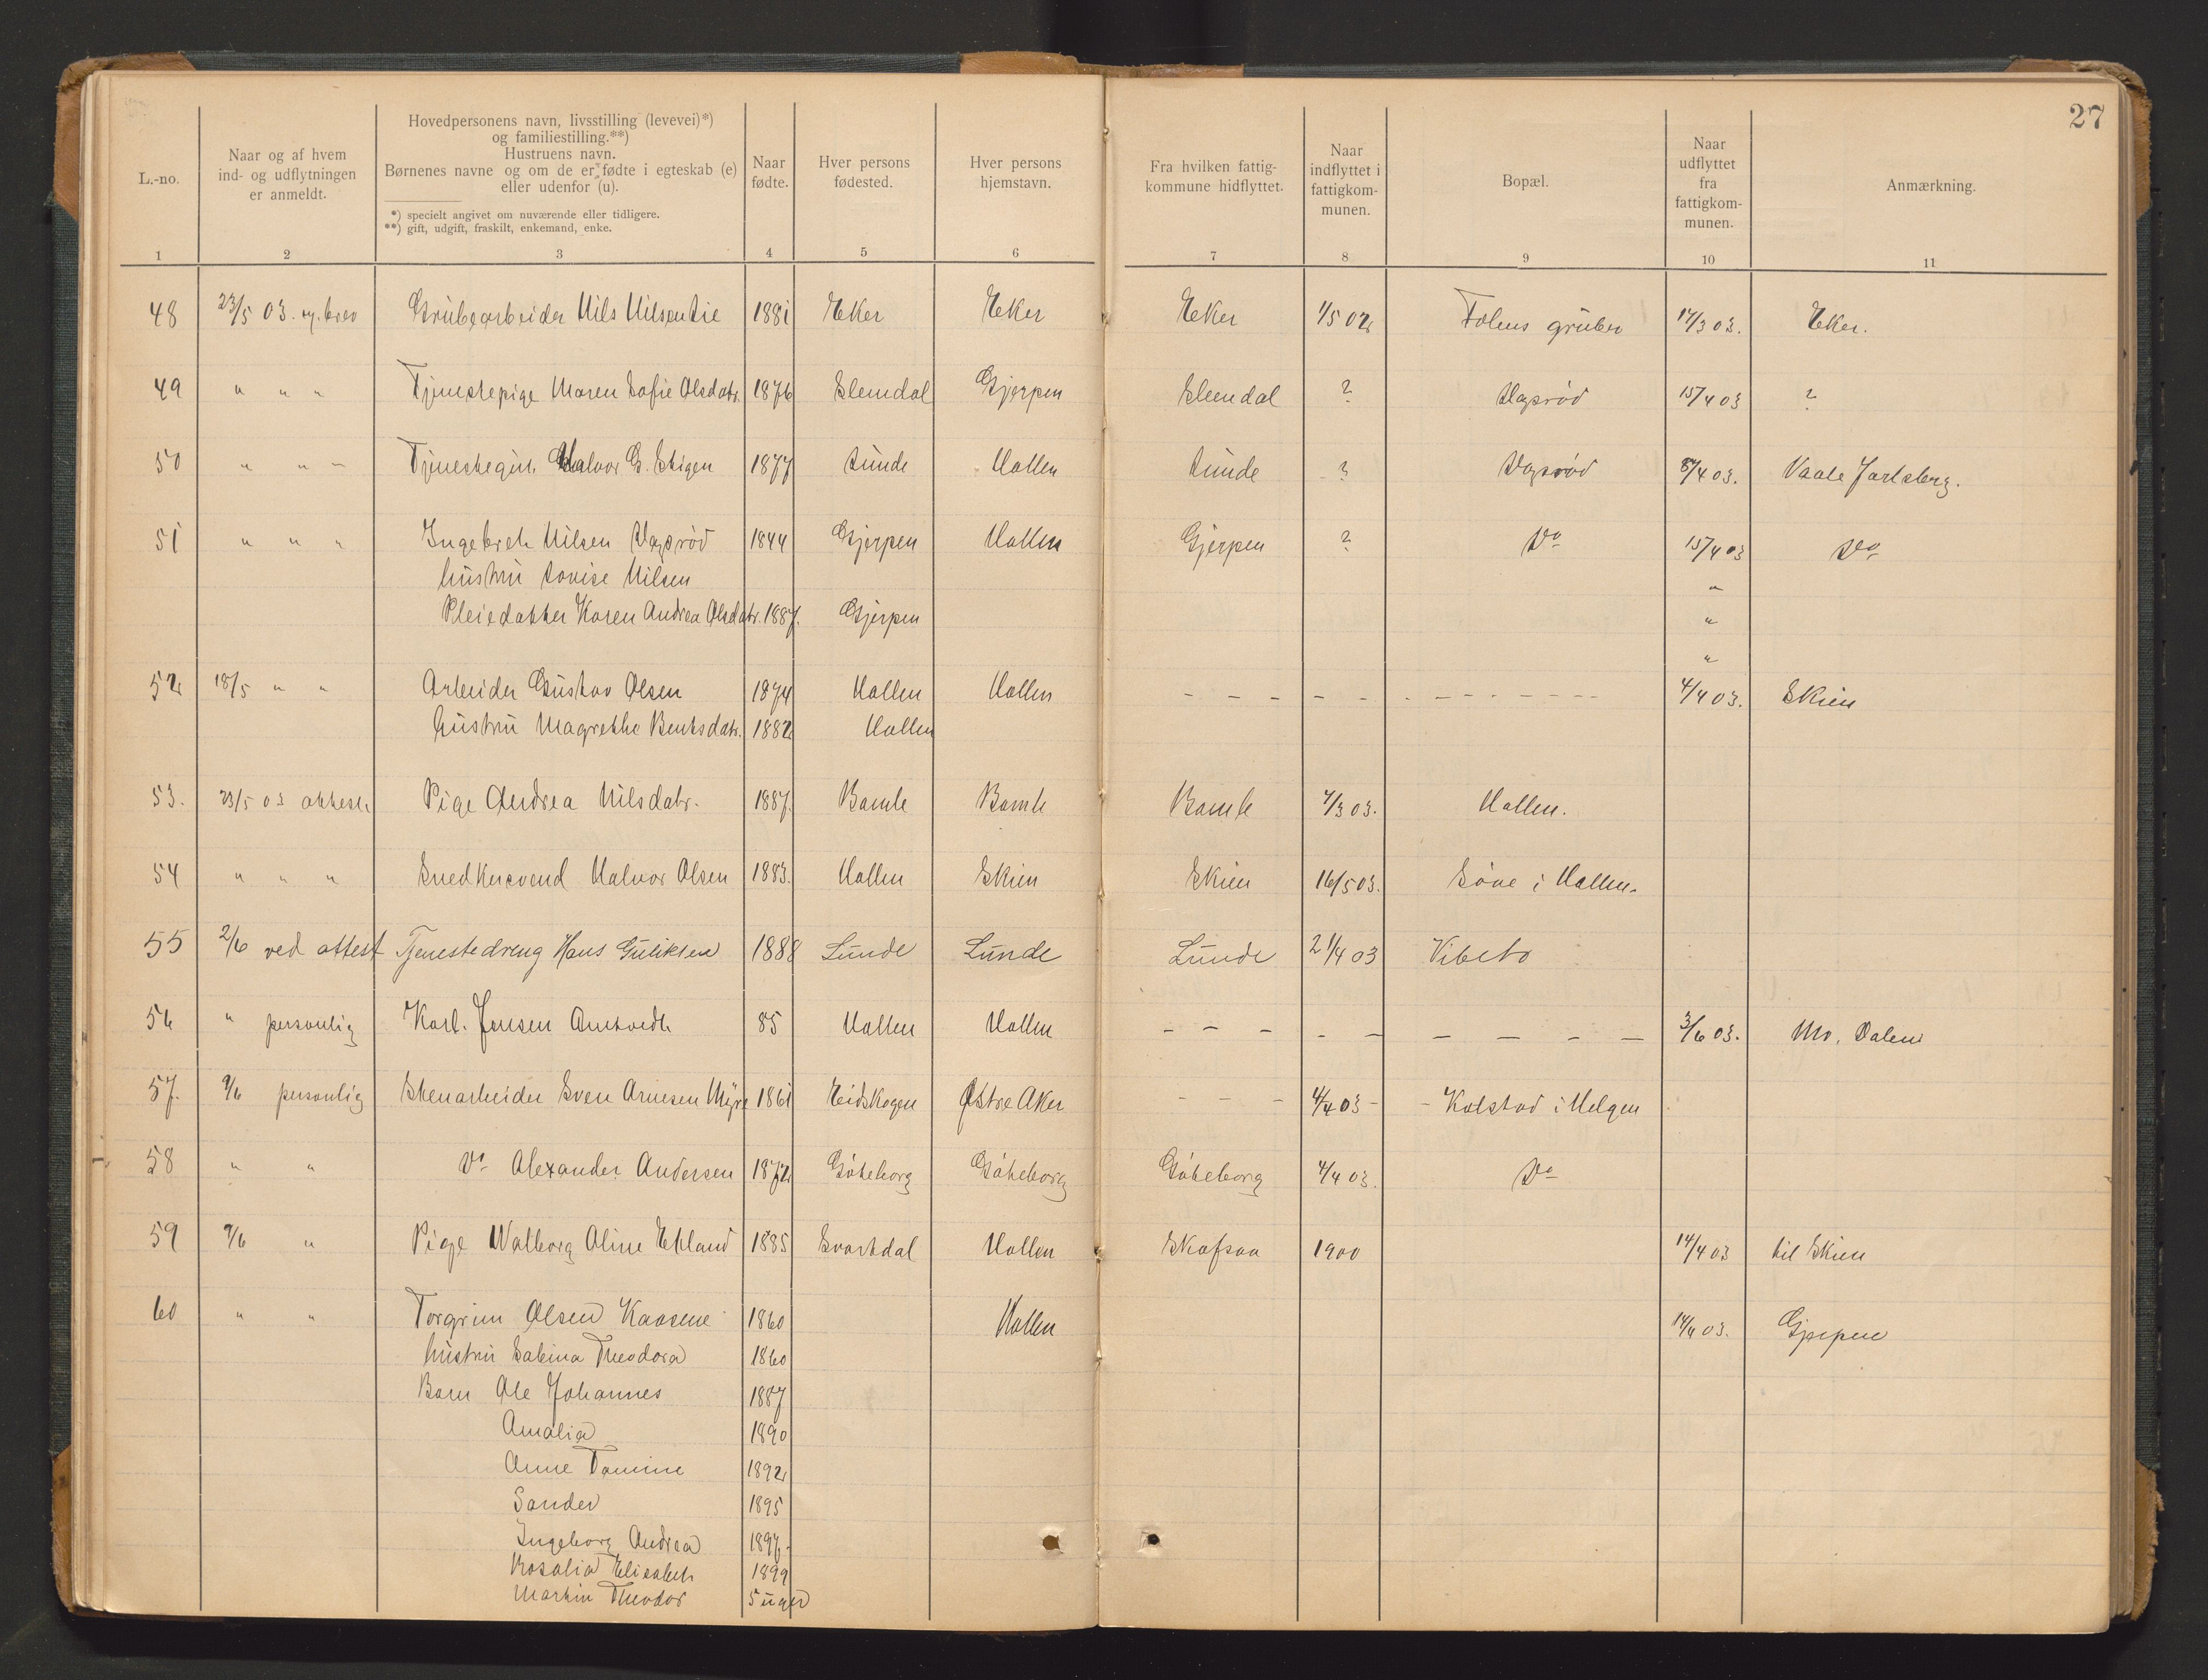 27
L.-no.
Naar og af hvem
ind- og udflytningen
er anmeldt.
Hovedpersonens navn, livsstilling (levevei)*)
og familiestilling.**)
Hustruens navn.
Børnenes navne og om de er fødte i egteskab (e)
eller udenfor (u).
*) specielt angivet om nuværende eller tidligere.
**) gift, udgift, fraskilt, enkemand, enke.
Naar
fødte.
Hver persons
fødested.
Hver persons
hjemstavn.
Fra hvilken fattig-
kommune hidflyttet.
Naar
indflyttet i
fattigkom-
munen.
Bopæl.
Naar
udflyttet
fra
fattigkom-
munen.
Anmærkning.
1 2 3 4 5 6 7 8 9 10 11
48 23/5 03. brev Grubearbeider Nils Nilsen 1881 Eker Eker Eker 1/5 02 Folens gruber 17/3 03. Eker.
49 " " " Tjenestepige Maren Sofie Olsdatr. 1876 Slemdal Gjerpen Slemdal ? Vaprød 15/4 03 ?
50 " " " Tjenestegut Halvor G. Stigen 1877 Lunde Hollen Lunde ? Vaprød 8/4 03. Vaale Jarlsberg.
51 " " " Ingebret Nilsen Vaprød 1844 Gjerpen Hollen Gjerpen ? Do 15/4 03 Do
hustru Lovise Nilsen "
Pleiedatter Karen Andrea Olsdatr. 1887. Gjerpen "
"
52 18/5 " " Arbeider Gustav Olsen 1874 Hollen Hollen - - - - - - - - - - - 4/4 03. Skien
hustru Magrethe Bentsdatr. 1882 Hollen
53. 23/5 03 attest Pige Andrea Nilsdatr. 1887. Bamle Bamle Bamle 7/3 03. Hollen.
54 " " " Snedkersvend Halvor Olsen 1883. Hollen Skien Skien 16/5 03. Søve i Hollen.
55 2/6 ved attest Tjenestedreng Hans Guliksen 1888 Lunde Lunde Lunde 21/4 03 Vibeto
56 " personlig Karl. Jensen Amtvedt 85 Hollen Hollen - - - - - - - - - 3/6 03. Mo, Dalen
57. 9/6 personlig Stenarbeider Sven Arnesen Myre 1861 Eidskogen Østre Aker - - - 4/4 03 - - Kolstad i Helgen
58 " " Do Alexander Andersen 1872 Göteborg Göteborg Göteborg 4/4 03. Do
59 9/6 " Pige Walborg Aline Ekland 1885 Svartdal Hollen Skafsaa 1900 14/4 03 til Skien
60 " " Torgrim Olsen Kaasene 1860 Hollen 14/4 03. Gjerpen
hustru Sabina Theodora 1860
Barn Ole Johannes 1887
Amalia 1890
Anne Tomine 1892
Sander 1895
Ingeborg Andrea 1897.
Rosalia Elisabet 1899
Martin Theodor 5 uger